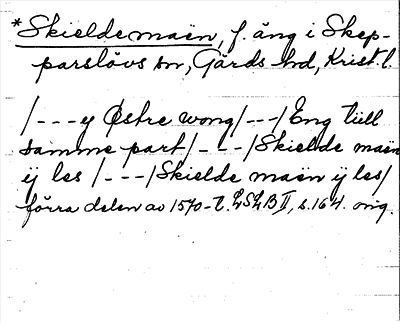 *Skieldemaën, f. äng i Skep-
parslövs sn, Gärds hd, Krist. l.
/---y Østre wong/---/Eng till
samme part/---/Skielde maën
ÿ les /---/Skielde maën ÿ les/
förra delen av 1570-t. LSLB II, s. 164. orig.